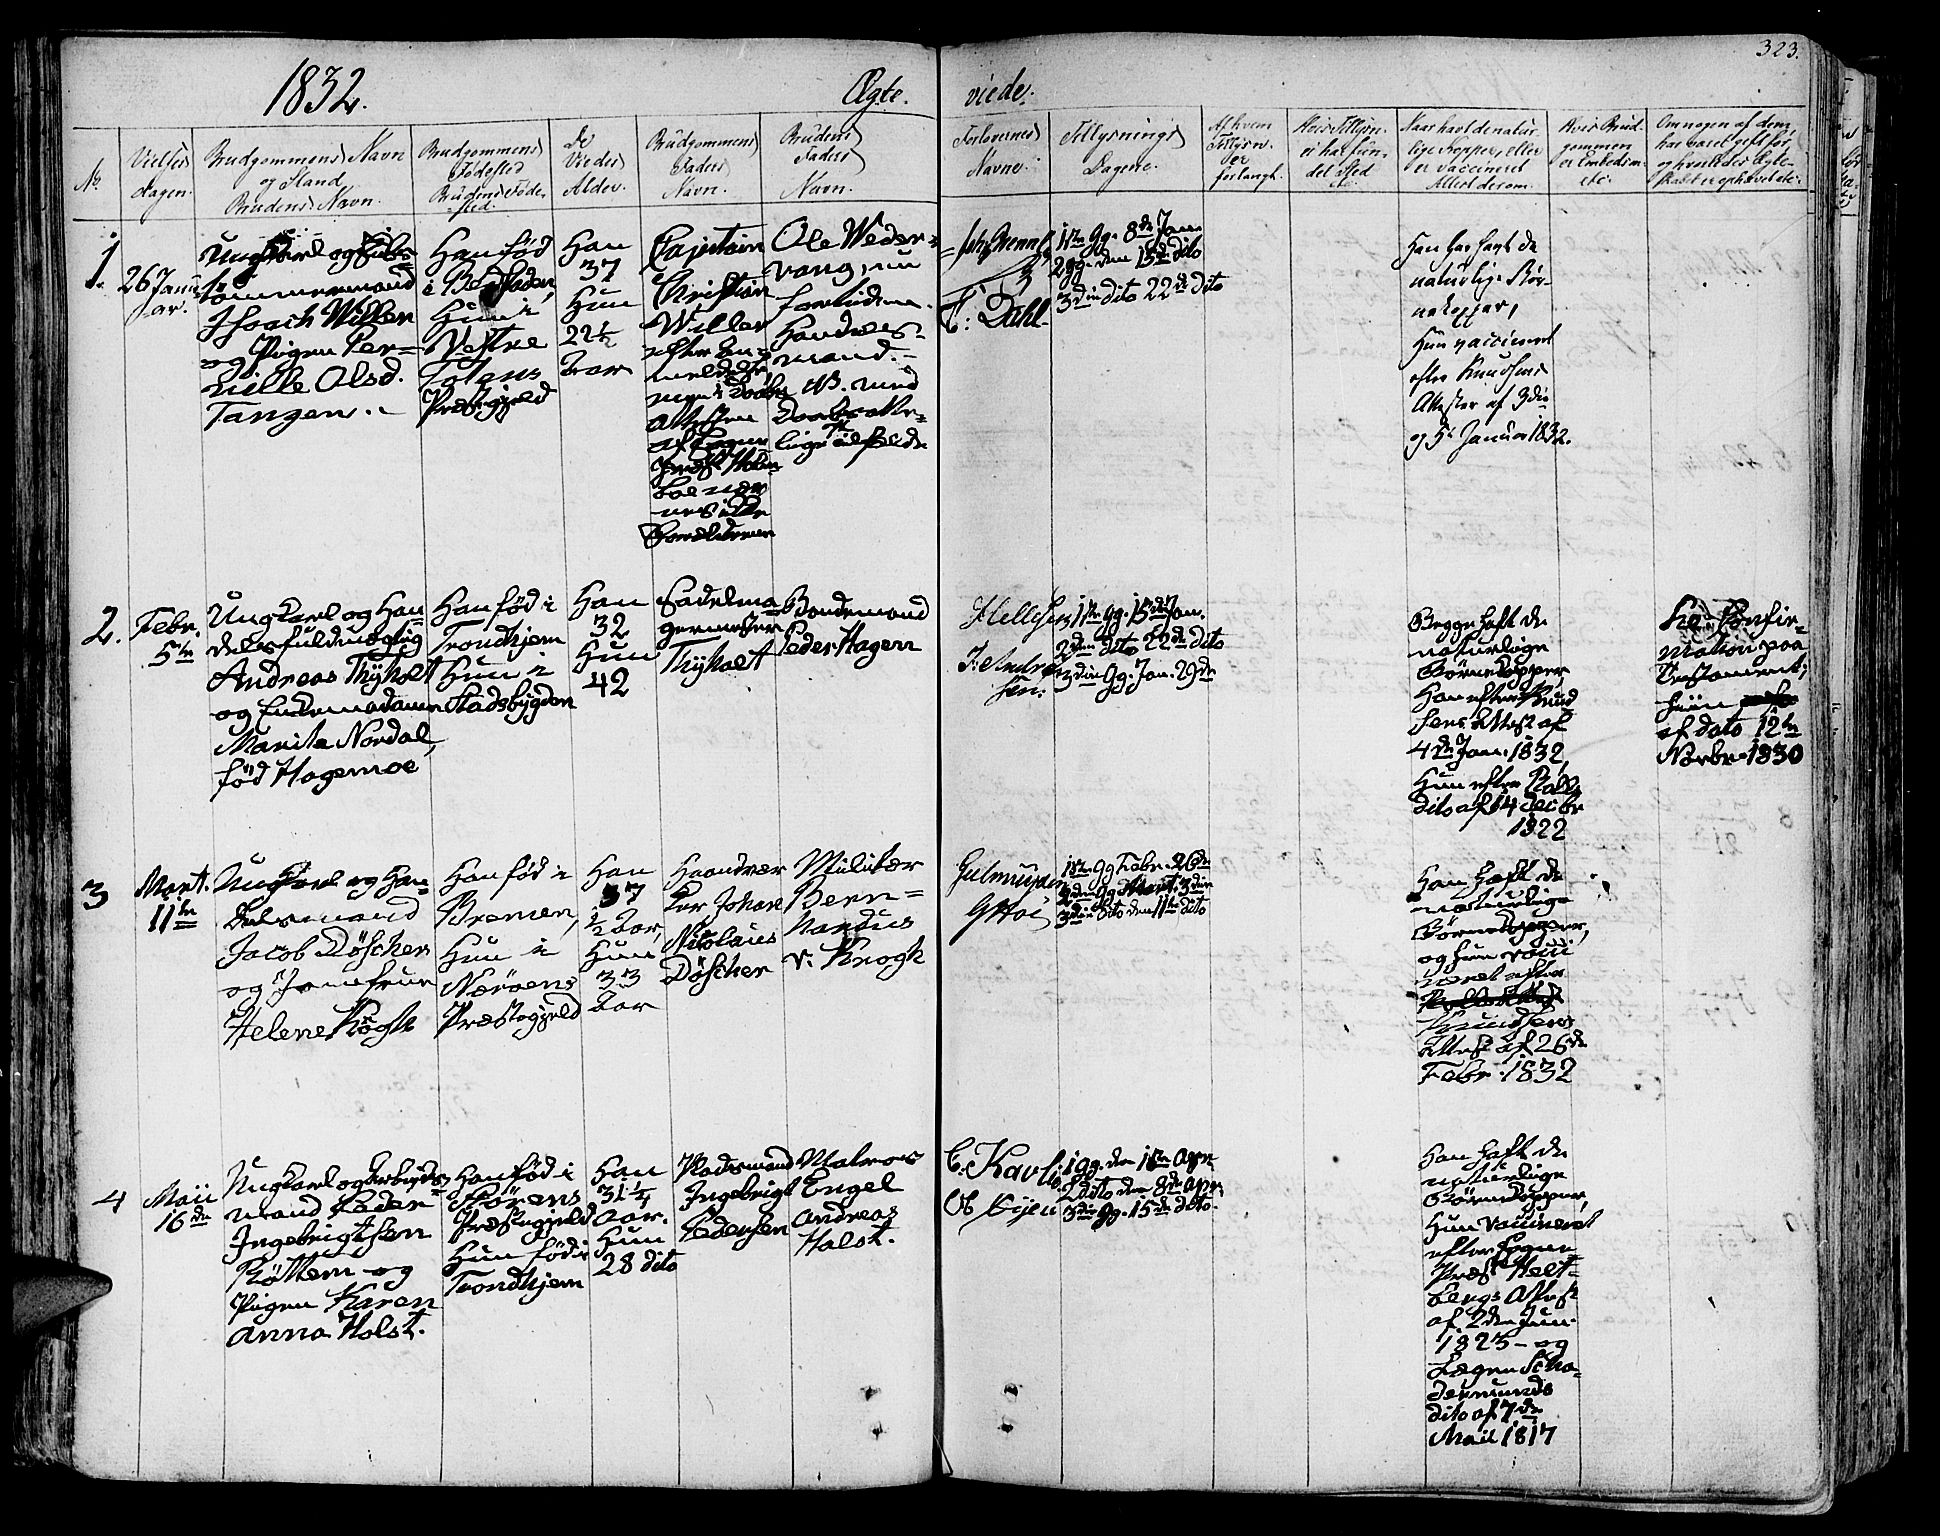 323.
1832.
Ægte
viede.
No.
Vielses
dagen.
Brudgommens Navn
og Stand
Brudens Navn.
Brudgommens
Fødested
Brudens Føde-
sted.
De
Viedes
Alder.
Brudgommens
Faders
Navn.
Brudens
Faders
Navn.
Forlovernes
Navne.
Tillysnings
Dagene.
Af hvem
Tillysn.
er
forlangt.
Hvis Tillysn.
ei har fun-
det sted
etc.
Naar havt de natur-
lige Kopper, eller
er vaccineret
Attest derom.
Hvis Brud-
gommen
er Embedsm.
etc.
Om nogen af dem
har været gift før,
og hvorledes Ægte-
skabet er ophævet etc.
1.
26 Janu
ar.
Ungkarl og
tømmermand
Willer
og Pigen Per-
nille Olsd.
Tangen.
Han fød
i
Hun i
Vestre
Totens
Præstegjeld
Han
37
Hun
22½
Aar
Capitain
Christian
Willer
efter An-
meldelse
Ole Weder-
vang, nu
forliden
Handels-
mand.
C: Dahl
1ste Gg. 8de Jan
2 gg. den 15de dito
3die dito 22de dito
Han har havt de
naturlige Bør-
nekopper,
Hun vaccineret
efter Knudsens
Attester af 3die
og 5te Januar 1832.
2.
Febr.
5te
Ungkarl og Han-
delsfuldmægtig
Andreas Thyholt
og Enkemadame
Marite Nordal,
fød Hagemoe
Han fød i
Trondhjem
Hun i
Stadsbygden
Han
32
Hun
42
Sadelma-
germester
Thyholt
Bondemand
Peder Hagen
Hellesen
J: Andre-
sen.
1ste Gg. 15de Jan.
2den dito 22de dito
3die Gg. Jan. 29de
Begge haft de
naturlige
Børnekopper
Han efter Knud
sens Attest af
4de Jan. 1832,
Hun efter
dito af 14 Decbr
1822
Confir-
mation paa
af dato 12te
Novbr. 1830
3
Mart.
11te
Ungkarl og Han-
delsmand
Jacob Döscher
og Jomfrue
Helene Kroghe
Han fød i
Bremen,
Hun i
Nærøens
Præstegjeld
Han
37
½ Aar,
Hun
33
Aar
Haandvær
ker Johan
Nicolaus
Döscher
Militær
Bern=
hardus
v: Krogh
G Hoi
1ste Gg Febr. 26de
2den Gg Mart. 3die
3die dito den 11te dito
Han haft de
naturlige
Børnekopper,
og hun vacci
neret efter
Knudsens
Attest af 26de
Febr. 1832
4
Maii
16de
Ungkarl og Arbeids-
mand Peder
Ingebrigtsen
Röttem og
Pigen Karen
Anna Holst.
Han fød i
Størens
Præstegjeld
Hun fød i
Trondhjem
Han
31¼
Aar.
Hun
28 dito
Pladsmand
Ingebrigt
Pedersen
Matros
Engel
Andreas
Holst.
C: Kavli
1 Gg. den 1ste Apr.
2 dito den 8de Apr.
3die Gg. 15de dito.
Han haft de
naturlige
Børnekopper,
Hun vaccineret
efter Sogne
Præst Helt-
bergs Attest
af 2den Jun.
1823 - og
Lægen Scha-
dermunds
dito af 7de
Maii 1817